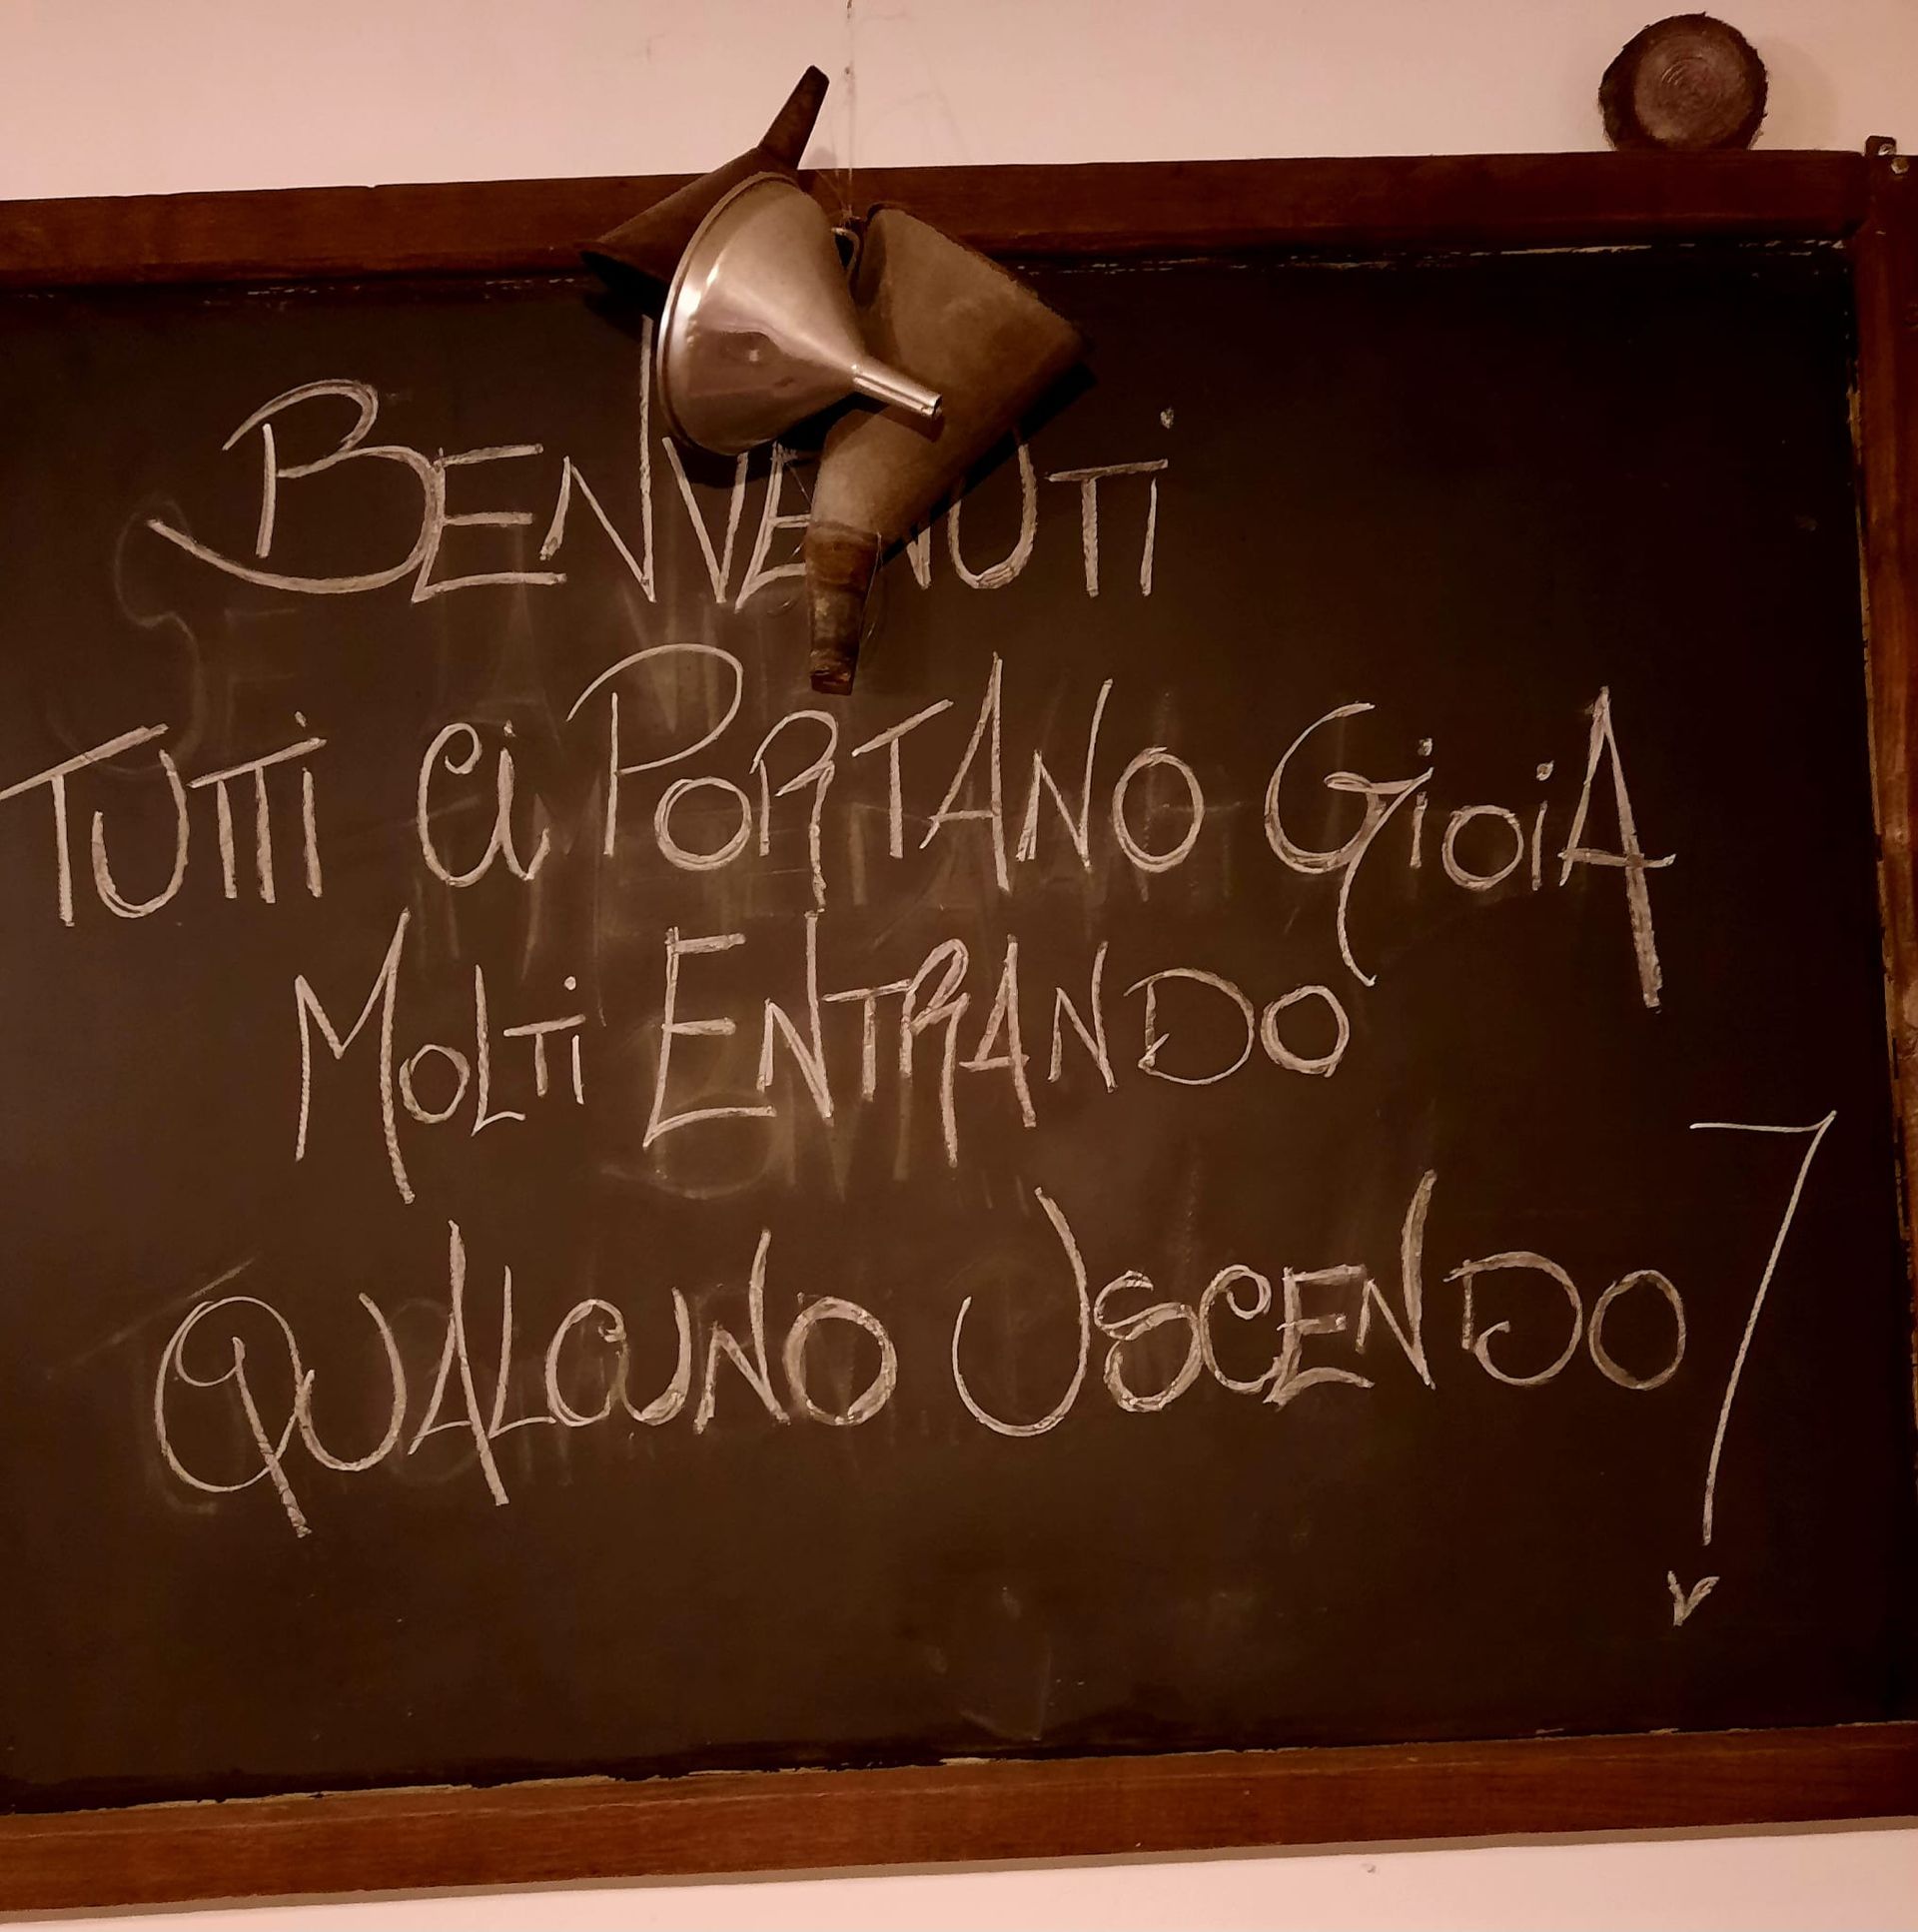 BENVENUTi
TUTTi Ci PORTANO GiOiA
MOLTi ENTRANDO
QUALCUNO USCENDO!